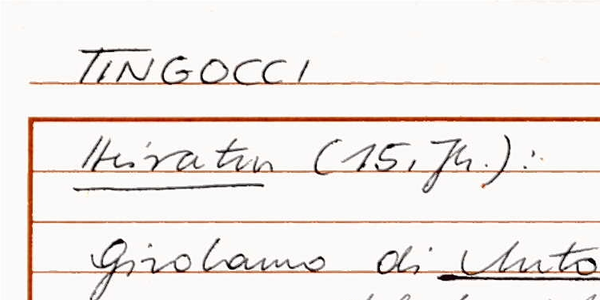 TINGOCCI
Heiraten (15. Jh.):
Girolamo di Anto